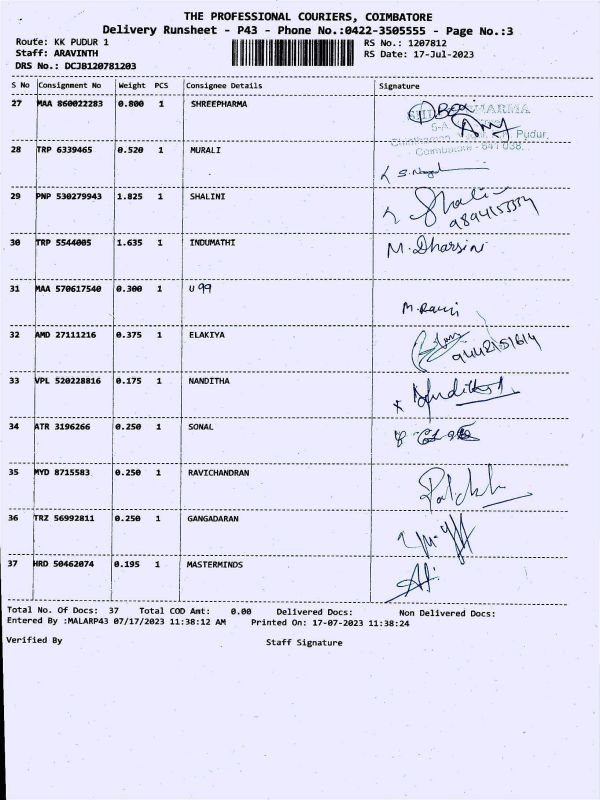 THE PROFESSIONAL COURIERS, COIMBATORE
Delivery Runsheet - P43 - Phone No.:0422-3505555 - Page No.:3
Route: KK PUDUR 1 RS No.: 1207812
Staff: ARAVINTH RS Date: 17-Jul-2023
DRS No.: DCJB120781203
S No Consignment No Weight PCS Consignee Details Signature
27 MAA 860022283 0.800 1 SHREEPHARMA
Pudur,
Coimbatore - 641 038.
28 TRP 6339465 0.520 1 MURALI
29 PNP 530279943 1.825 1 SHALINI Shalini
30 TRP 5544005 1.635 1 INDUMATHI M. Dharsini
31 MAA 570617540 0.300 1 U 99
32 AMD 27111216 0.375 1 ELAKIYA
33 VPL 520228816 0.175 1 NANDITHA
34 ATR 3196266 0.250 1 SONAL
35 MYD 8715583 0.250 1 RAVICHANDRAN
36 TRZ 56992811 0.250 1 GANGADARAN
37 HRD 50462074 0.195 1 MASTERMINDS
Total No. Of Docs: 37 Total COD Amt: 0.00 Delivered Docs: Non Delivered Docs:
Entered By :MALARP43 07/17/2023 11:38:12 AM Printed On: 17-07-2023 11:38:24
Verified By Staff Signature